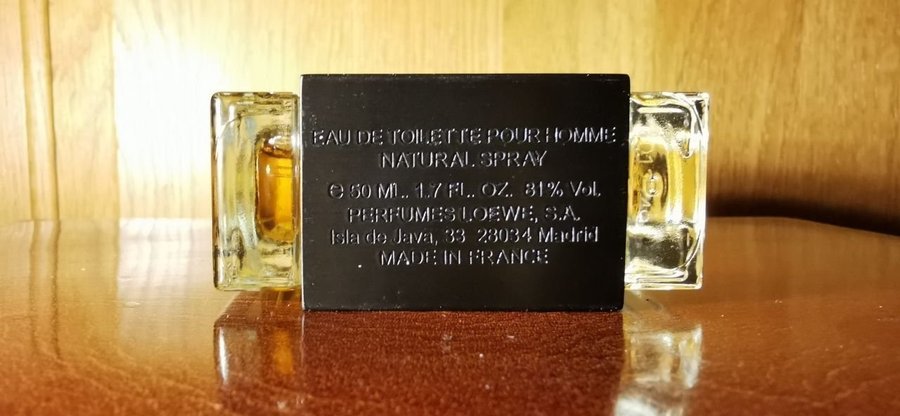 EAU DE TOILETTE POUR HOMME
NATURAL SPRAY
℮ 50 ML. 1.7 FL. OZ. 81% Vol.
PERFUMES LOEWE, S.A.
Isla de Java, 33 28034 Madrid
MADE IN FRANCE